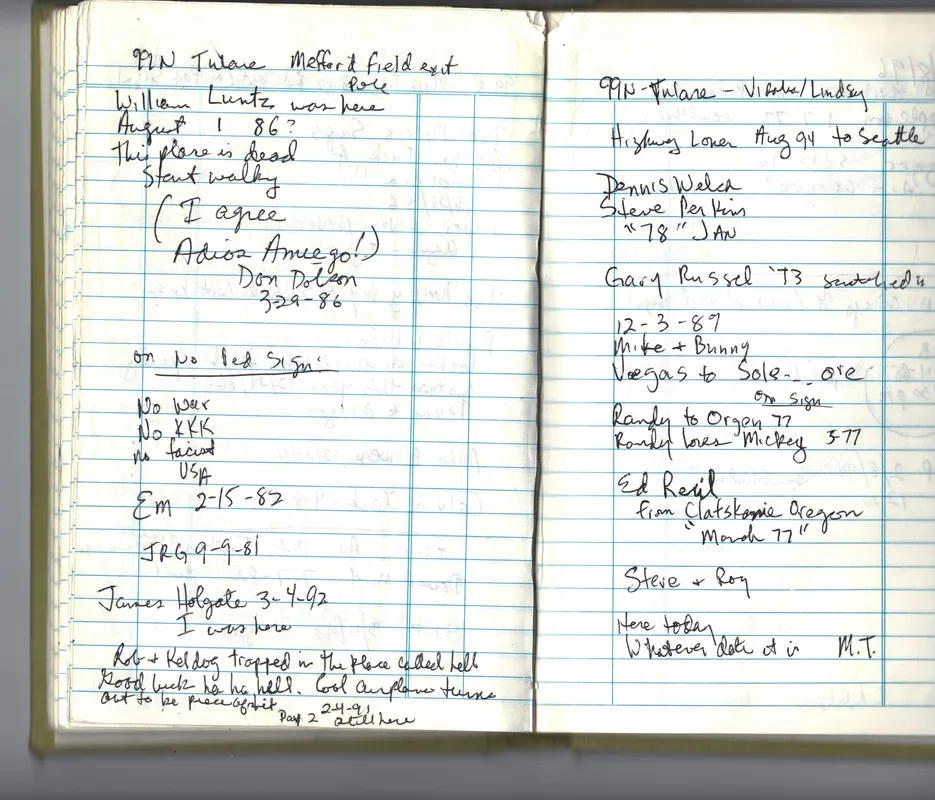 99N Tulare Mefford Field exit
Pole
William Luntz was here
August 1 86?
This place is dead
Start walky
(I agree
Adios Ameego!)
Don Dotson
3-29-86
on No Ped Sign:
No War
No KKK
no facist
USA
Em 2-15-82
JRG 9-9-81
James Holgate 3-4-92
I was here
Rob + Keldog trapped in the place called hell
Good luck ha ha hell. Cool airplane turns
out to be piece of
2-4-91
Day 2 still here
99N-Tulare - Visalia/Lindsey
Highway Loner Aug 94 to Seattle
Dennis Welch
Steve Perkins
"78" JAN
Gary Russel '73 scratched in
12-3-89
Mike + Bunny
Veegas to Sole... ore
on sign
Randy to Orgen 77
Randy loves Mickey 5-77
Ed
from Clatskanie Oregon
"March 77"
Steve + Roy
Here today
Whatever date it is M.T.